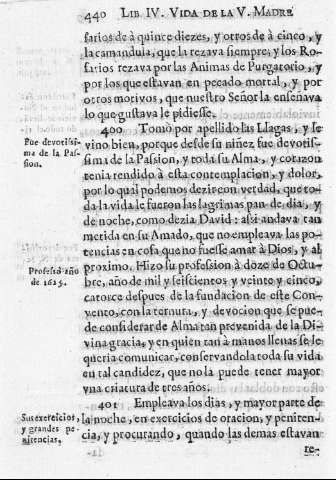 440 LIB. IV. VIDA DE LA V. MADRE
sarios de à quince diezes, y otros de à cinco, y
la camandula, que la rezava siempre; y los Ro-
sarios rezava por las Animas de Purgatorio, y
por los que estavan en pecado mortal, y por
otros motivos, que nuestro Señor la enseñava
lo que gustava le pidiesse.
400 Tomò por apellido las Llagas, y se
vino bien, porque desde su niñez fue devotis-
sima de la Passion, y toda su Alma, y corazon
tenia rendido à esta contemplacion, y dolor,
por lo qual podemos dezir con verdad, que to-
da la vida le fueron las lagrimas pan de dia, y
de noche, como dezia David: assi andava tan
metida en su Amado, que no empleava las po-
tencias en cosa que no fuesse amar à Dios, y al
proximo. Hizo su profession à doze de Octu-
bre, año de mil y seiscientos y veinte y cinco,
catorce despues de la fundacion de este Con-
vento, con la ternura, y devocion que se pue-
de considerar de Alma tan prevenida de la Di-
vina gracia, y en quien tan à manos llenas se le
queria comunicar, conservandola toda su vida
en tal candidez, que no la puede tener mayor
vna criatura de tres años.
401 Empleava los dias, y mayor parte de
la noche, en exercicios de oracion, y peniten-
cia, y procurando, quando las demas estavan
re-
Fue devotissi-
ma de la Pas-
sion.
Professò año
de 1625.
Sus exercicios,
y grandes pe-
nitencias.